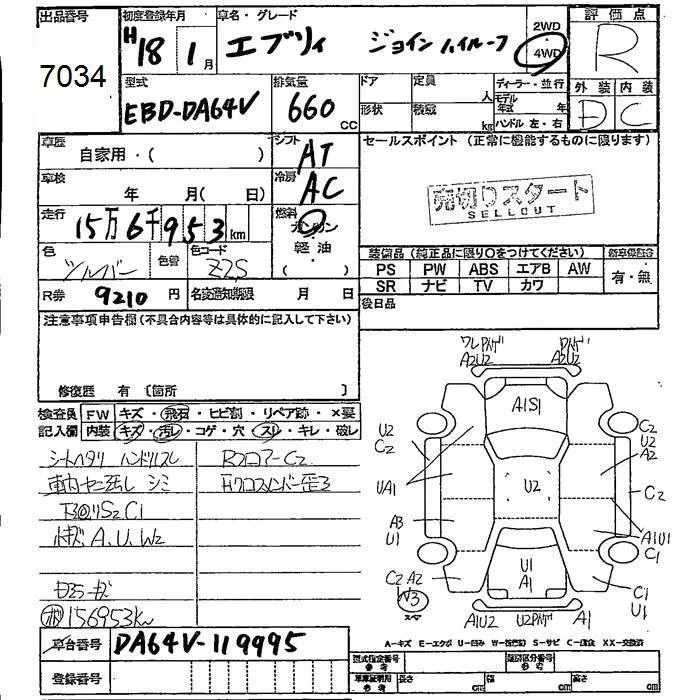 出品番号 初度登録年月 車名・グレード 評価点
7034 H18 1月 エブリィ ジョイン ハイルーフ 2WD 4WD R
型式 排気量 ドア 定員 人 ディーラー・並行 外装 内装
EBD-DA64V 660 cc 形状 積載 kg モデル年式 年 ハンドル 左・右 D C
車歴 自家用・( ) シフト AT セールスポイント (正常に機能するものに限ります)
車検 年 月( 日) 冷房 AC
売切りスタート
SELLOUT
走行 15万6千953km 燃料 ガソリン 軽油 ( )
色 シルバー 色替 色コード Z2S
装備品 (純正品に限り○をつけてください) 新車保証書
PS PW ABS エアB AW 有・無
SR ナビ TV カワ
R券 9210円 名変通知期限 月 日 後日品
注意事項申告欄 (不具合内容等は具体的に記入して下さい)
修復歴 有 〔箇所 〕
検査員 FW キズ・飛石・ヒビ割・リペア跡・×要
記入欄 内装 キズ・汚レ・コゲ・穴・スレ・キレ・破レ
シートヘタリ ハンドルスレ RフロアーC2
車内ヤニ汚し シミ
下回りS2C1
キズ A,U,W2
156953km
車台番号 DA64V-119995
登録番号
A2U2 A2U2
A1S1
U2 C2 C2 U2 A2
UA1 U2 C2
A3 U1 A1U1 C1
U1 A1
C2 A2 C1 U1
A1U2 U2 A1
A-キズ E-エクボ U-凹み W-波(補修) S-サビ C-腐食 XX-交換済
型式指定番号 参考 類別区分番号 参考
車庫証明用 参考 長さ cm 幅 cm 高さ cm